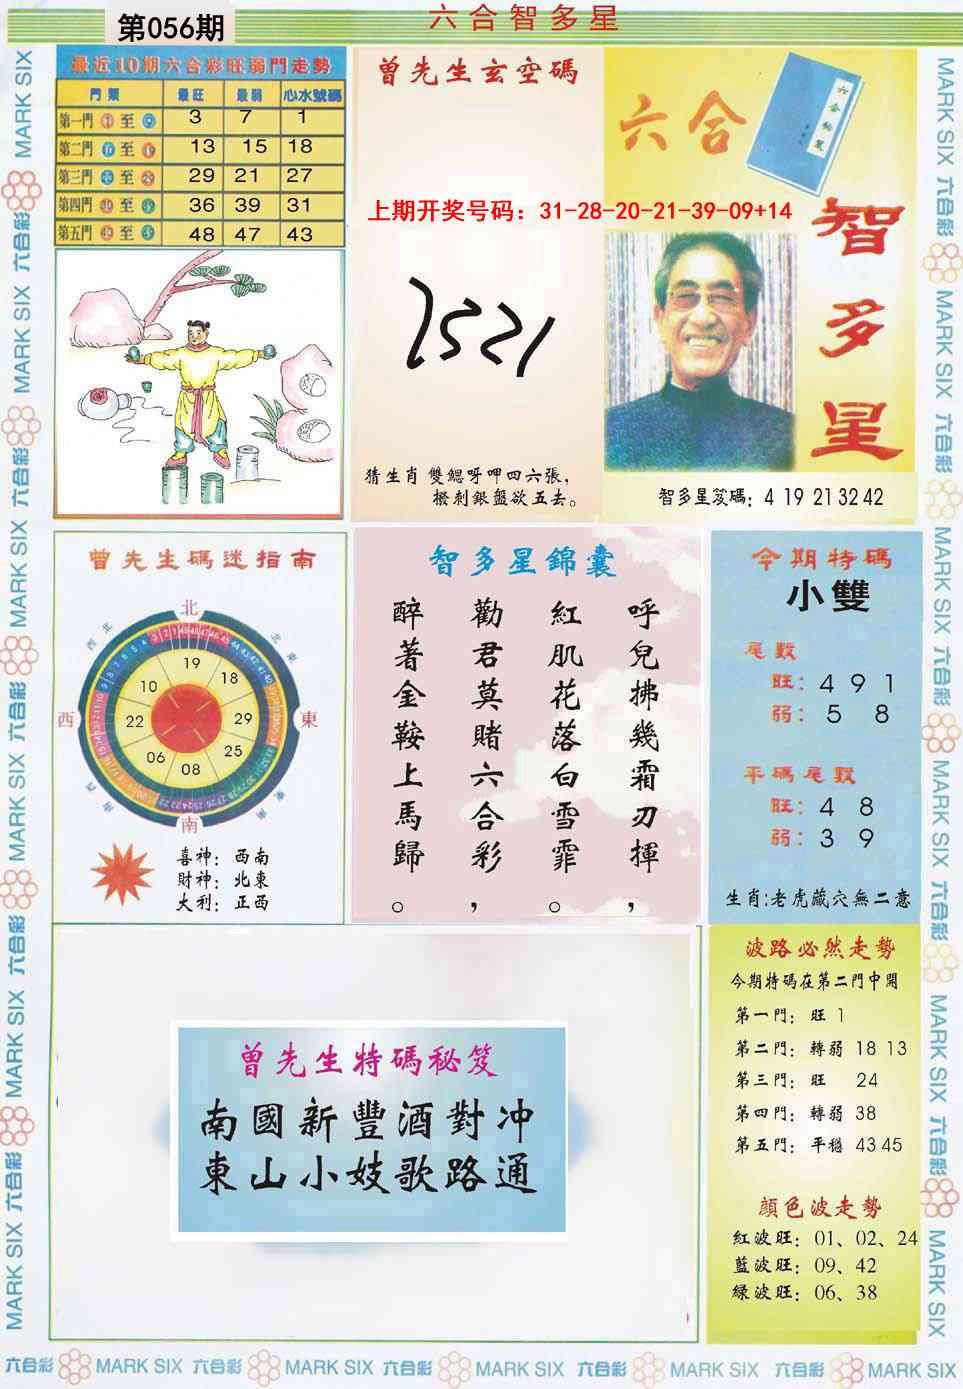 第056期
六合智多星
最近10期六合彩旺弱門走勢
門類 最旺 最弱 心水號碼
第一門 至 3 7 1
第二門 至 13 15 18
第三門 至 29 21 27
第四門 至 36 39 31
第五門 至 48 47 43
曾先生玄空碼
上期开奖号码：31-28-20-21-39-09+14
猜生肖 雙鰓呀呷四六張，
撥剌銀盤欲五去。
六合
智多星
智多星笈碼：4 19 21 32 42
曾先生碼迷指南
北
西北
東北
西
東
南
19
18
29
25
08
06
22
10
喜神：西南
財神：北東
大利：正西
智多星錦囊
呼兒拂幾霜刃揮，
紅肌花落白雪霏。
勸君莫賭六合彩，
醉著金鞍上馬歸。
今期特碼
小雙
尾數
旺：4 9 1
弱：5 8
平碼尾數
旺：4 8
弱：3 9
生肖:老虎藏穴無二意
曾先生特碼秘笈
南國新豐酒對冲
東山小妓歌路通
波路必然走勢
今期特碼在第二門中開
第一門：旺 1
第二門：轉弱 18 13
第三門：旺 24
第四門：轉弱 38
第五門：平穩 43 45
顔色波走勢
紅波旺：01、02、24
藍波旺：09、42
綠波旺：06、38
六合彩 MARK SIX 六合彩 MARK SIX 六合彩 MARK SIX 六合彩 MARK SIX 六合彩 MARK SIX